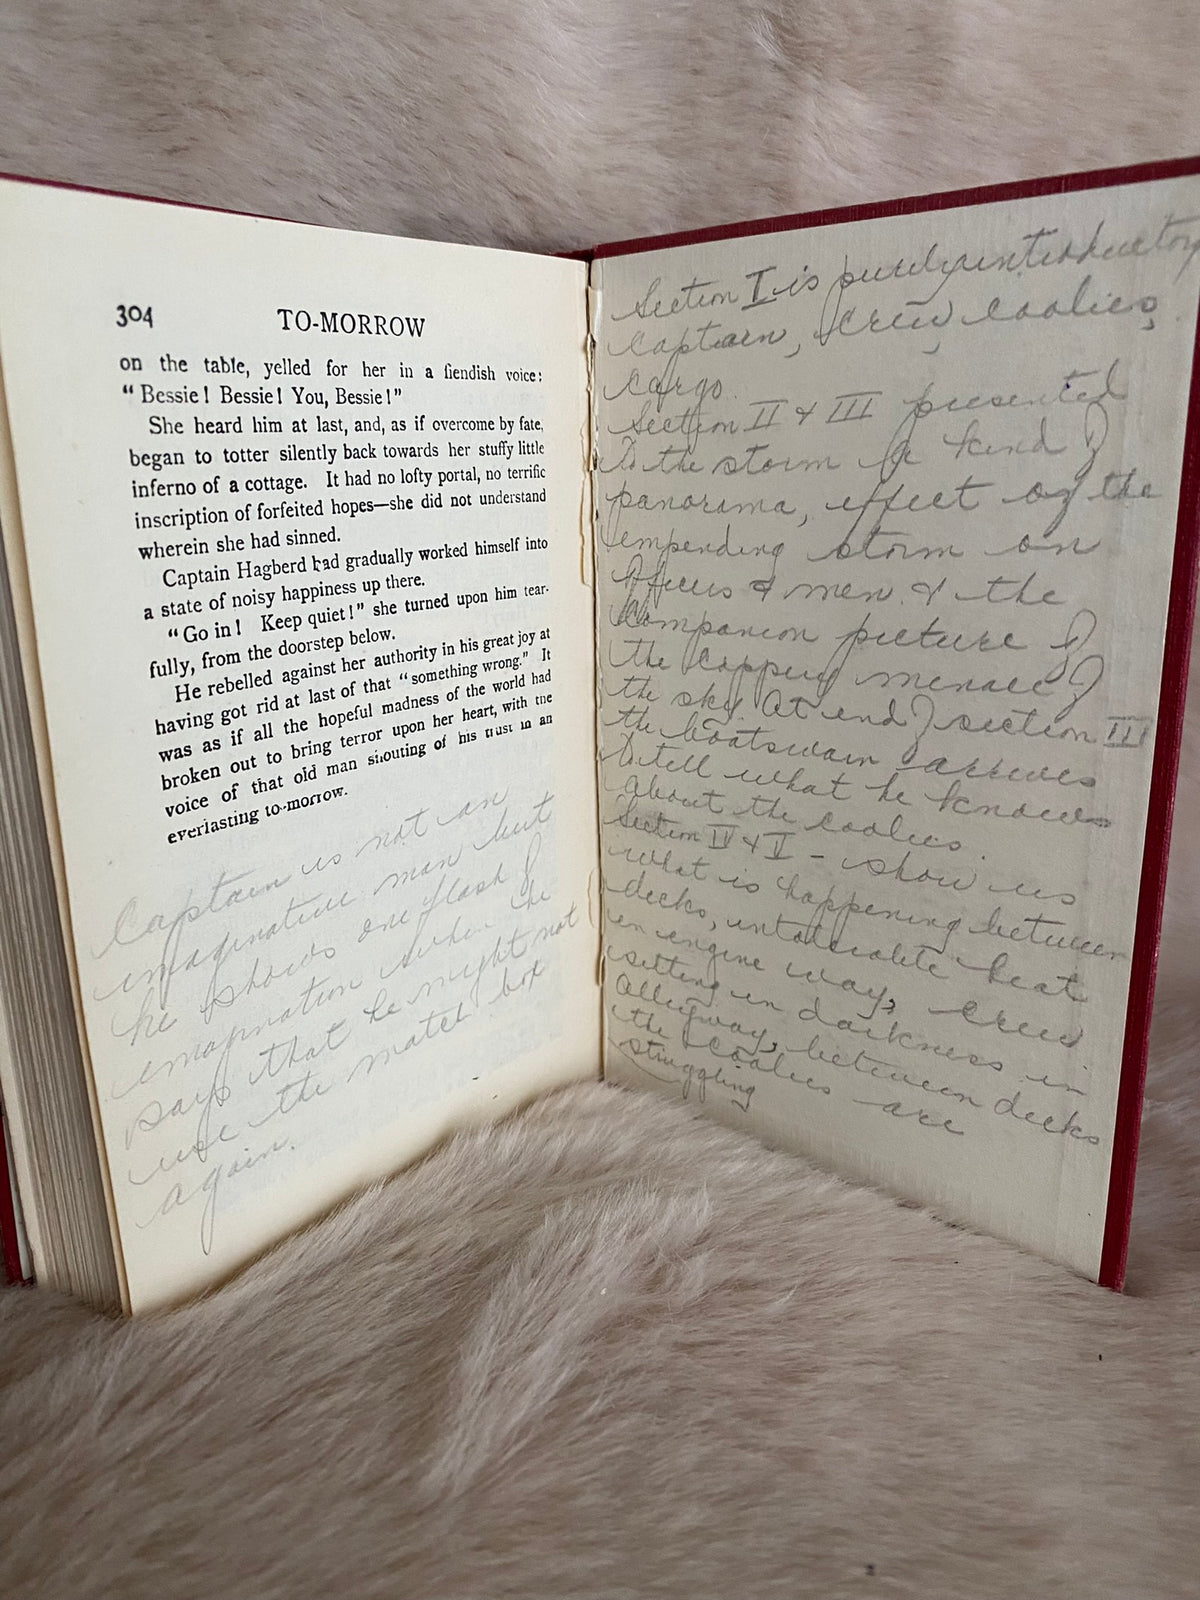 304
TO-MORROW
on the table, yelled for her in a fiendish voice:
“Bessie! Bessie! You, Bessie!”
She heard him at last, and, as if overcome by fate,
began to totter silently back towards her stuffy little
inferno of a cottage. It had no lofty portal, no terrific
inscription of forfeited hopes—she did not understand
wherein she had sinned.
Captain Hagberd had gradually worked himself into
a state of noisy happiness up there.
“Go in! Keep quiet!” she turned upon him tear-
fully, from the doorstep below.
He rebelled against her authority in his great joy at
having got rid at last of that “something wrong.” It
was as if all the hopeful madness of the world had
broken out to bring terror upon her heart, with the
voice of that old man shouting of his trust in an
everlasting to-morrow.
Captain is not an
imaginative man but
he shows one flash of
imagination when he
says that he might not
use the match box
again.
Section I is purely introductory
Captain, crew, coolies,
cargo.
Section II & III presented
to the storm a kind of
panorama, effect of the
impending storm on
officers & men. & the
companion picture of
the coppery menace of
the sky. At end of section III
the boatswain arrives
to tell what he knows
about the coolies.
Section IV & V - show us
what is happening between
decks, intolerable heat
in engine way, crew
sitting in darkness in
alleyway, between decks
the coolies are
struggling